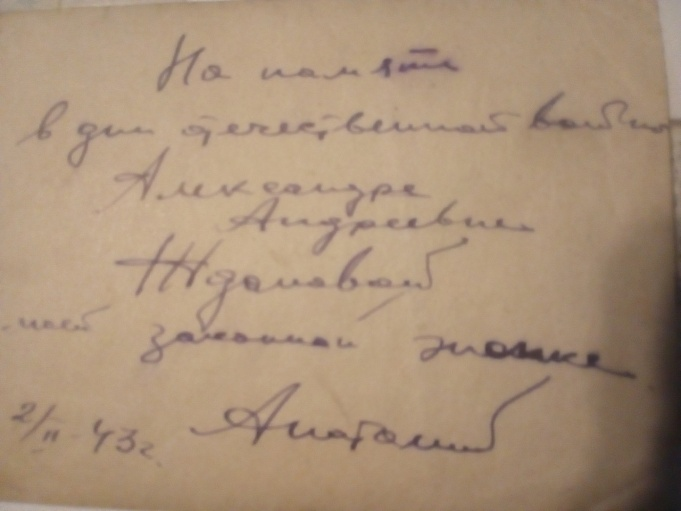 На память
в дни отечественной войны
Александре
Андреевне
Ждановой
моей законной жонке
Анатолий
2/II-43г.